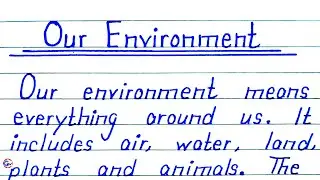 Our Environment
Our environment means
everything around us. It
includes air, water, land,
plants and animals. The